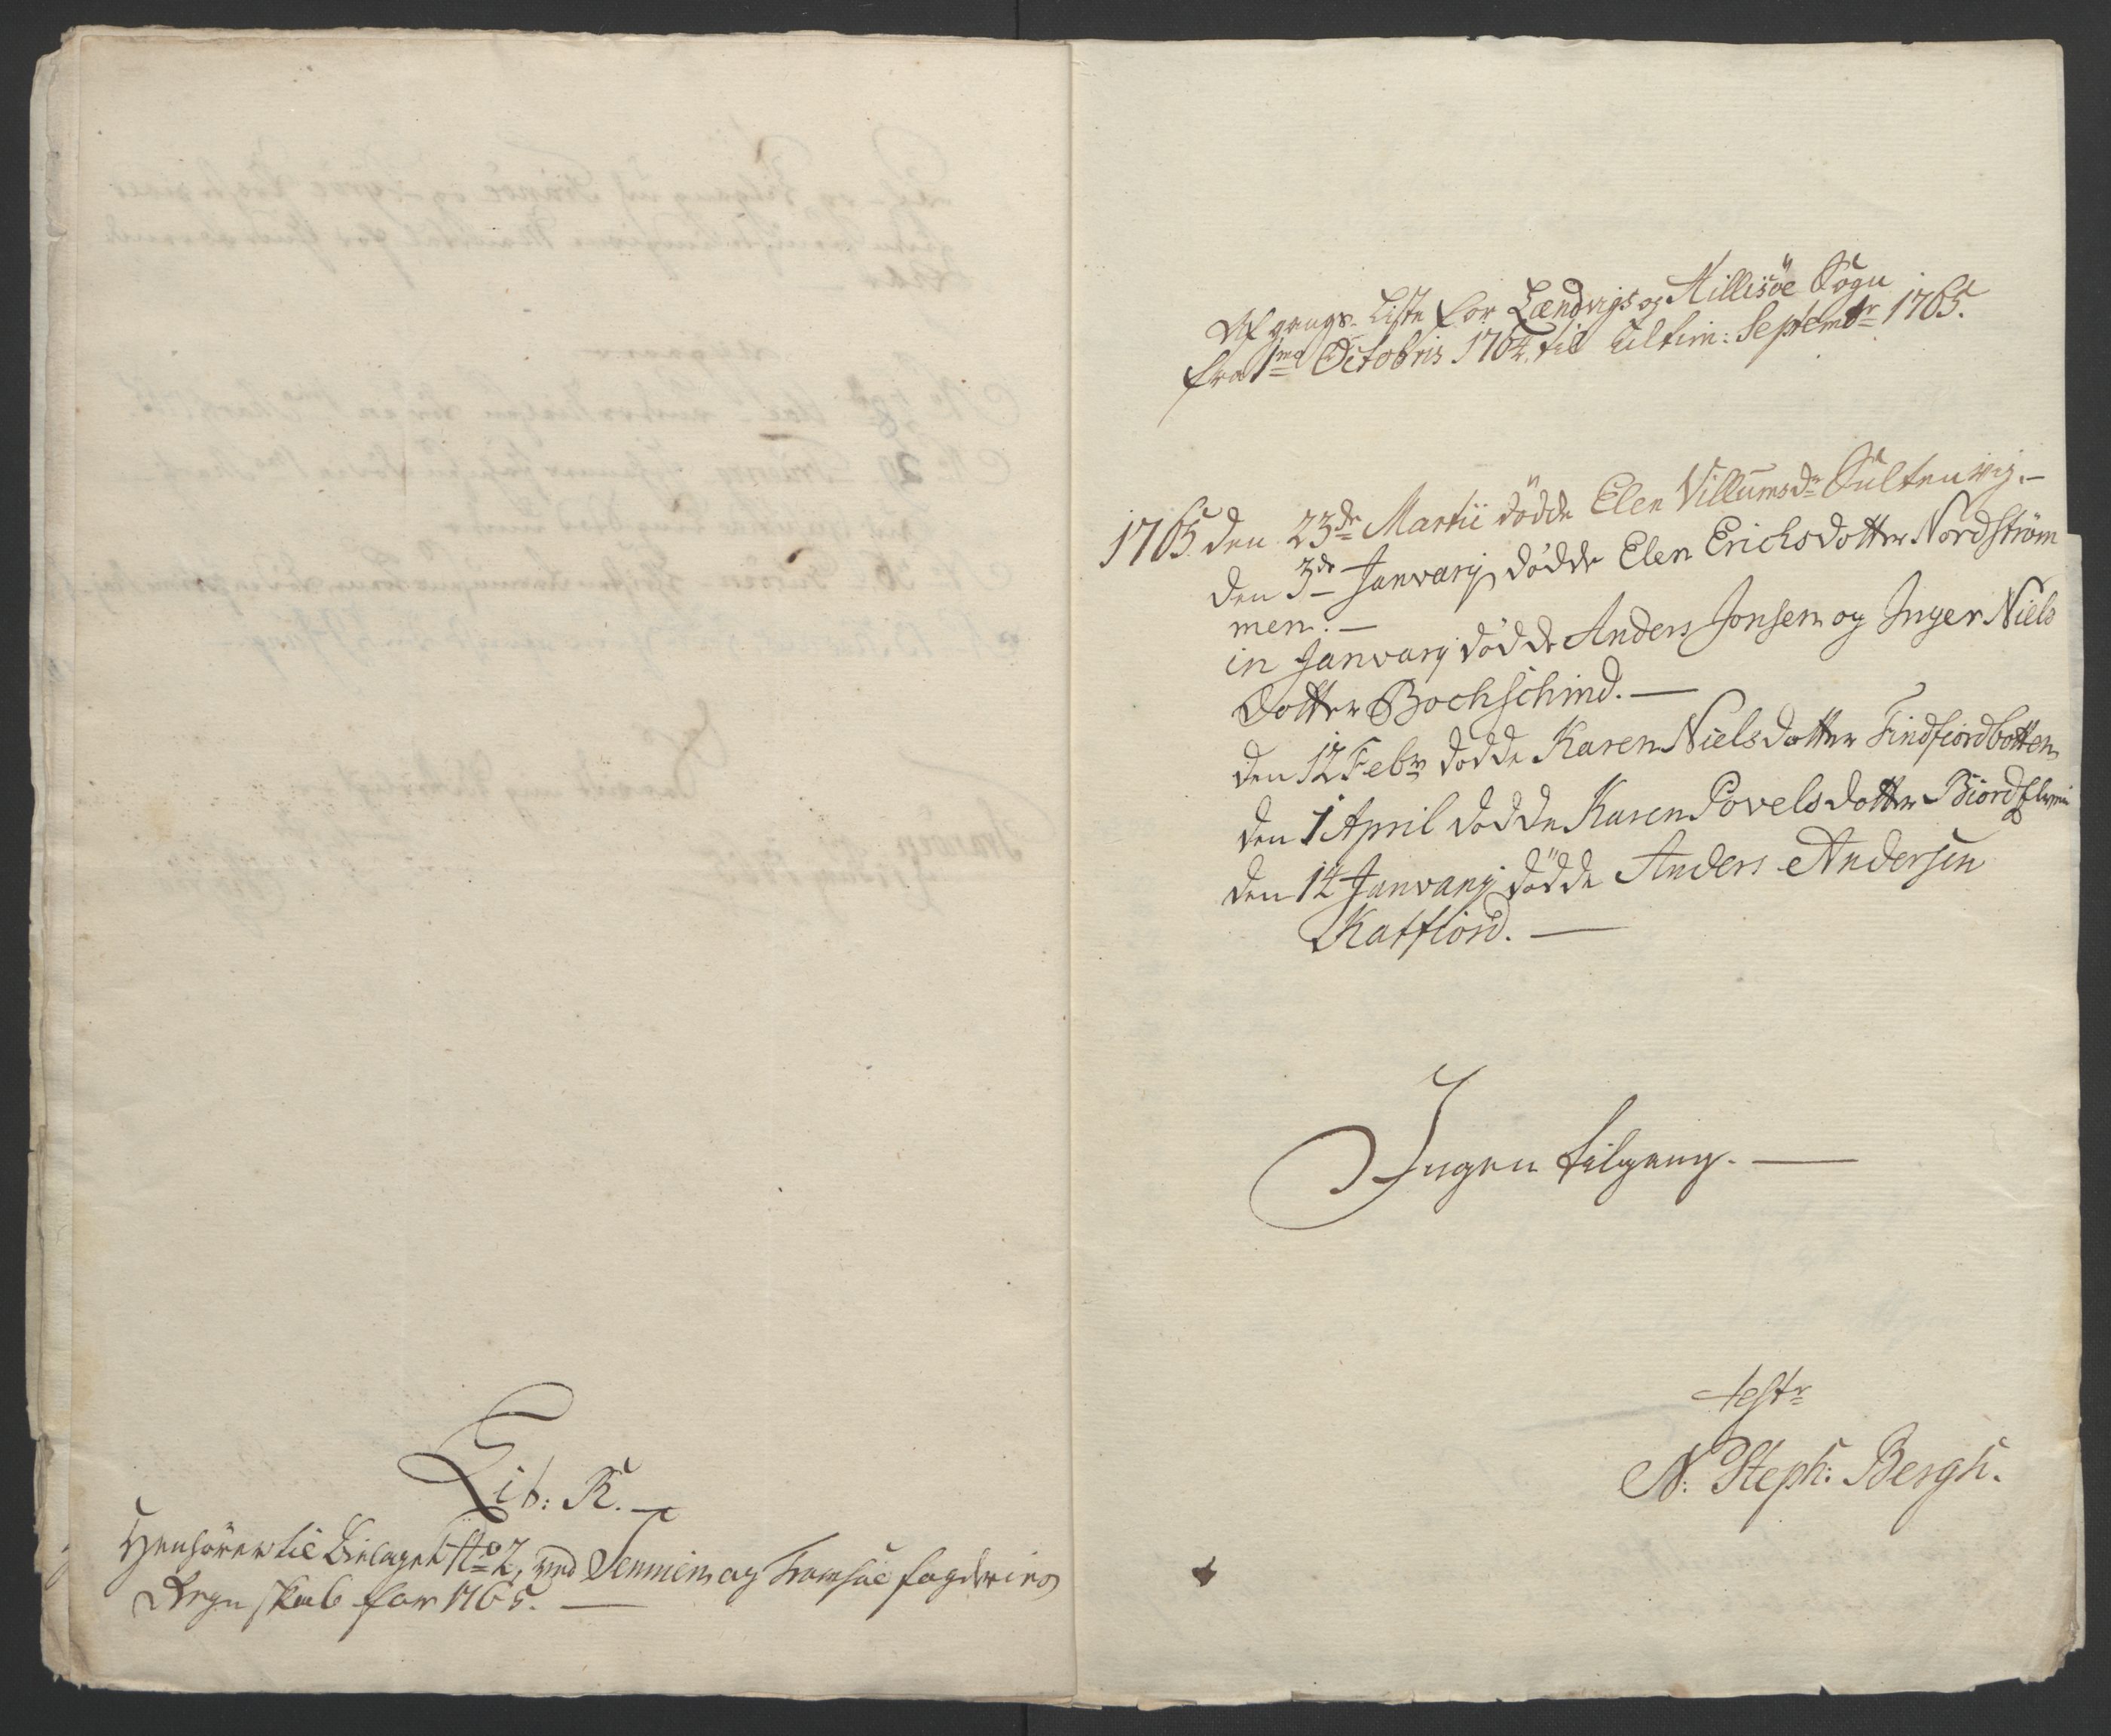 Lit: K.
Henhörer til Bielaget No 2, ved Senniens og Tromsöe fogderies
Regnskab for 1765.
Afgangs Liste for Lændvigs og Hillisöe Sogn
fra 1me Octobris 1764 til Ultim: Septembr 1765.
1765. den 23de Martii dödde Elen Villumsdr Sultenvig.
den 3de Janvarij dödde Elen Erichsdotter Nordströmmen.
in Janvarij dödde Anders Jonsen og Inger Niels
dotter Bochschind.
den 12 Febr dödde Karen Nielsdotter Findfiordbotten
den 1 April dödde Karen Povelsdotter
den 14 Janvarij dödde Anders Andersen
Katfiord.
Ingen tilgang.
testr
N: Steph: Bergh.